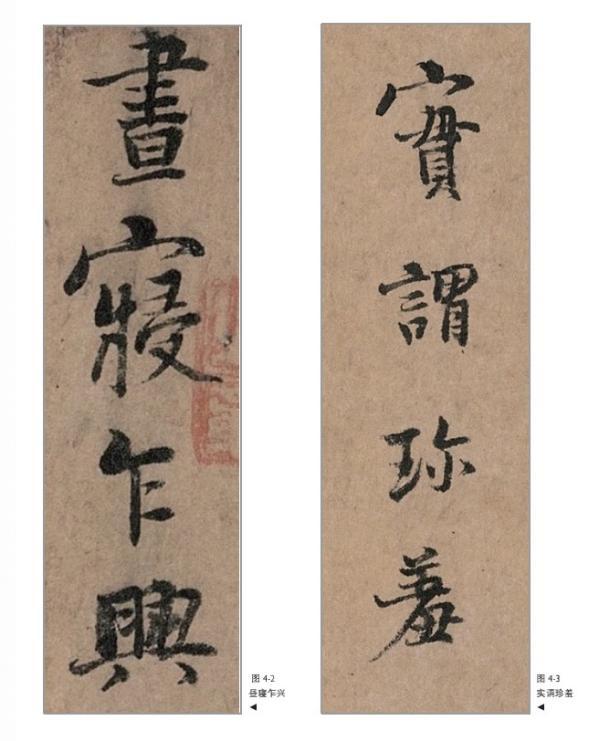 晝寢乍興
图 4-2
昼寝乍兴
◀
實謂珍羞
图 4-3
实谓珍羞
◀